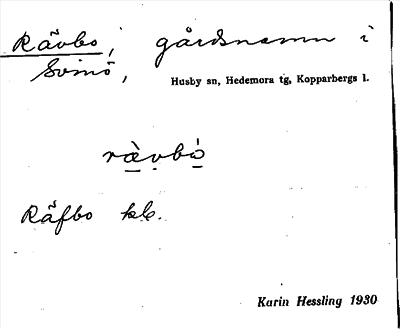 Rävbo, gårdsnamn i
Svinö,
Husby sn, Hedemora tg, Kopparbergs l.
rä̀vbò
Räfbo kb.
Karin Hessling 1930